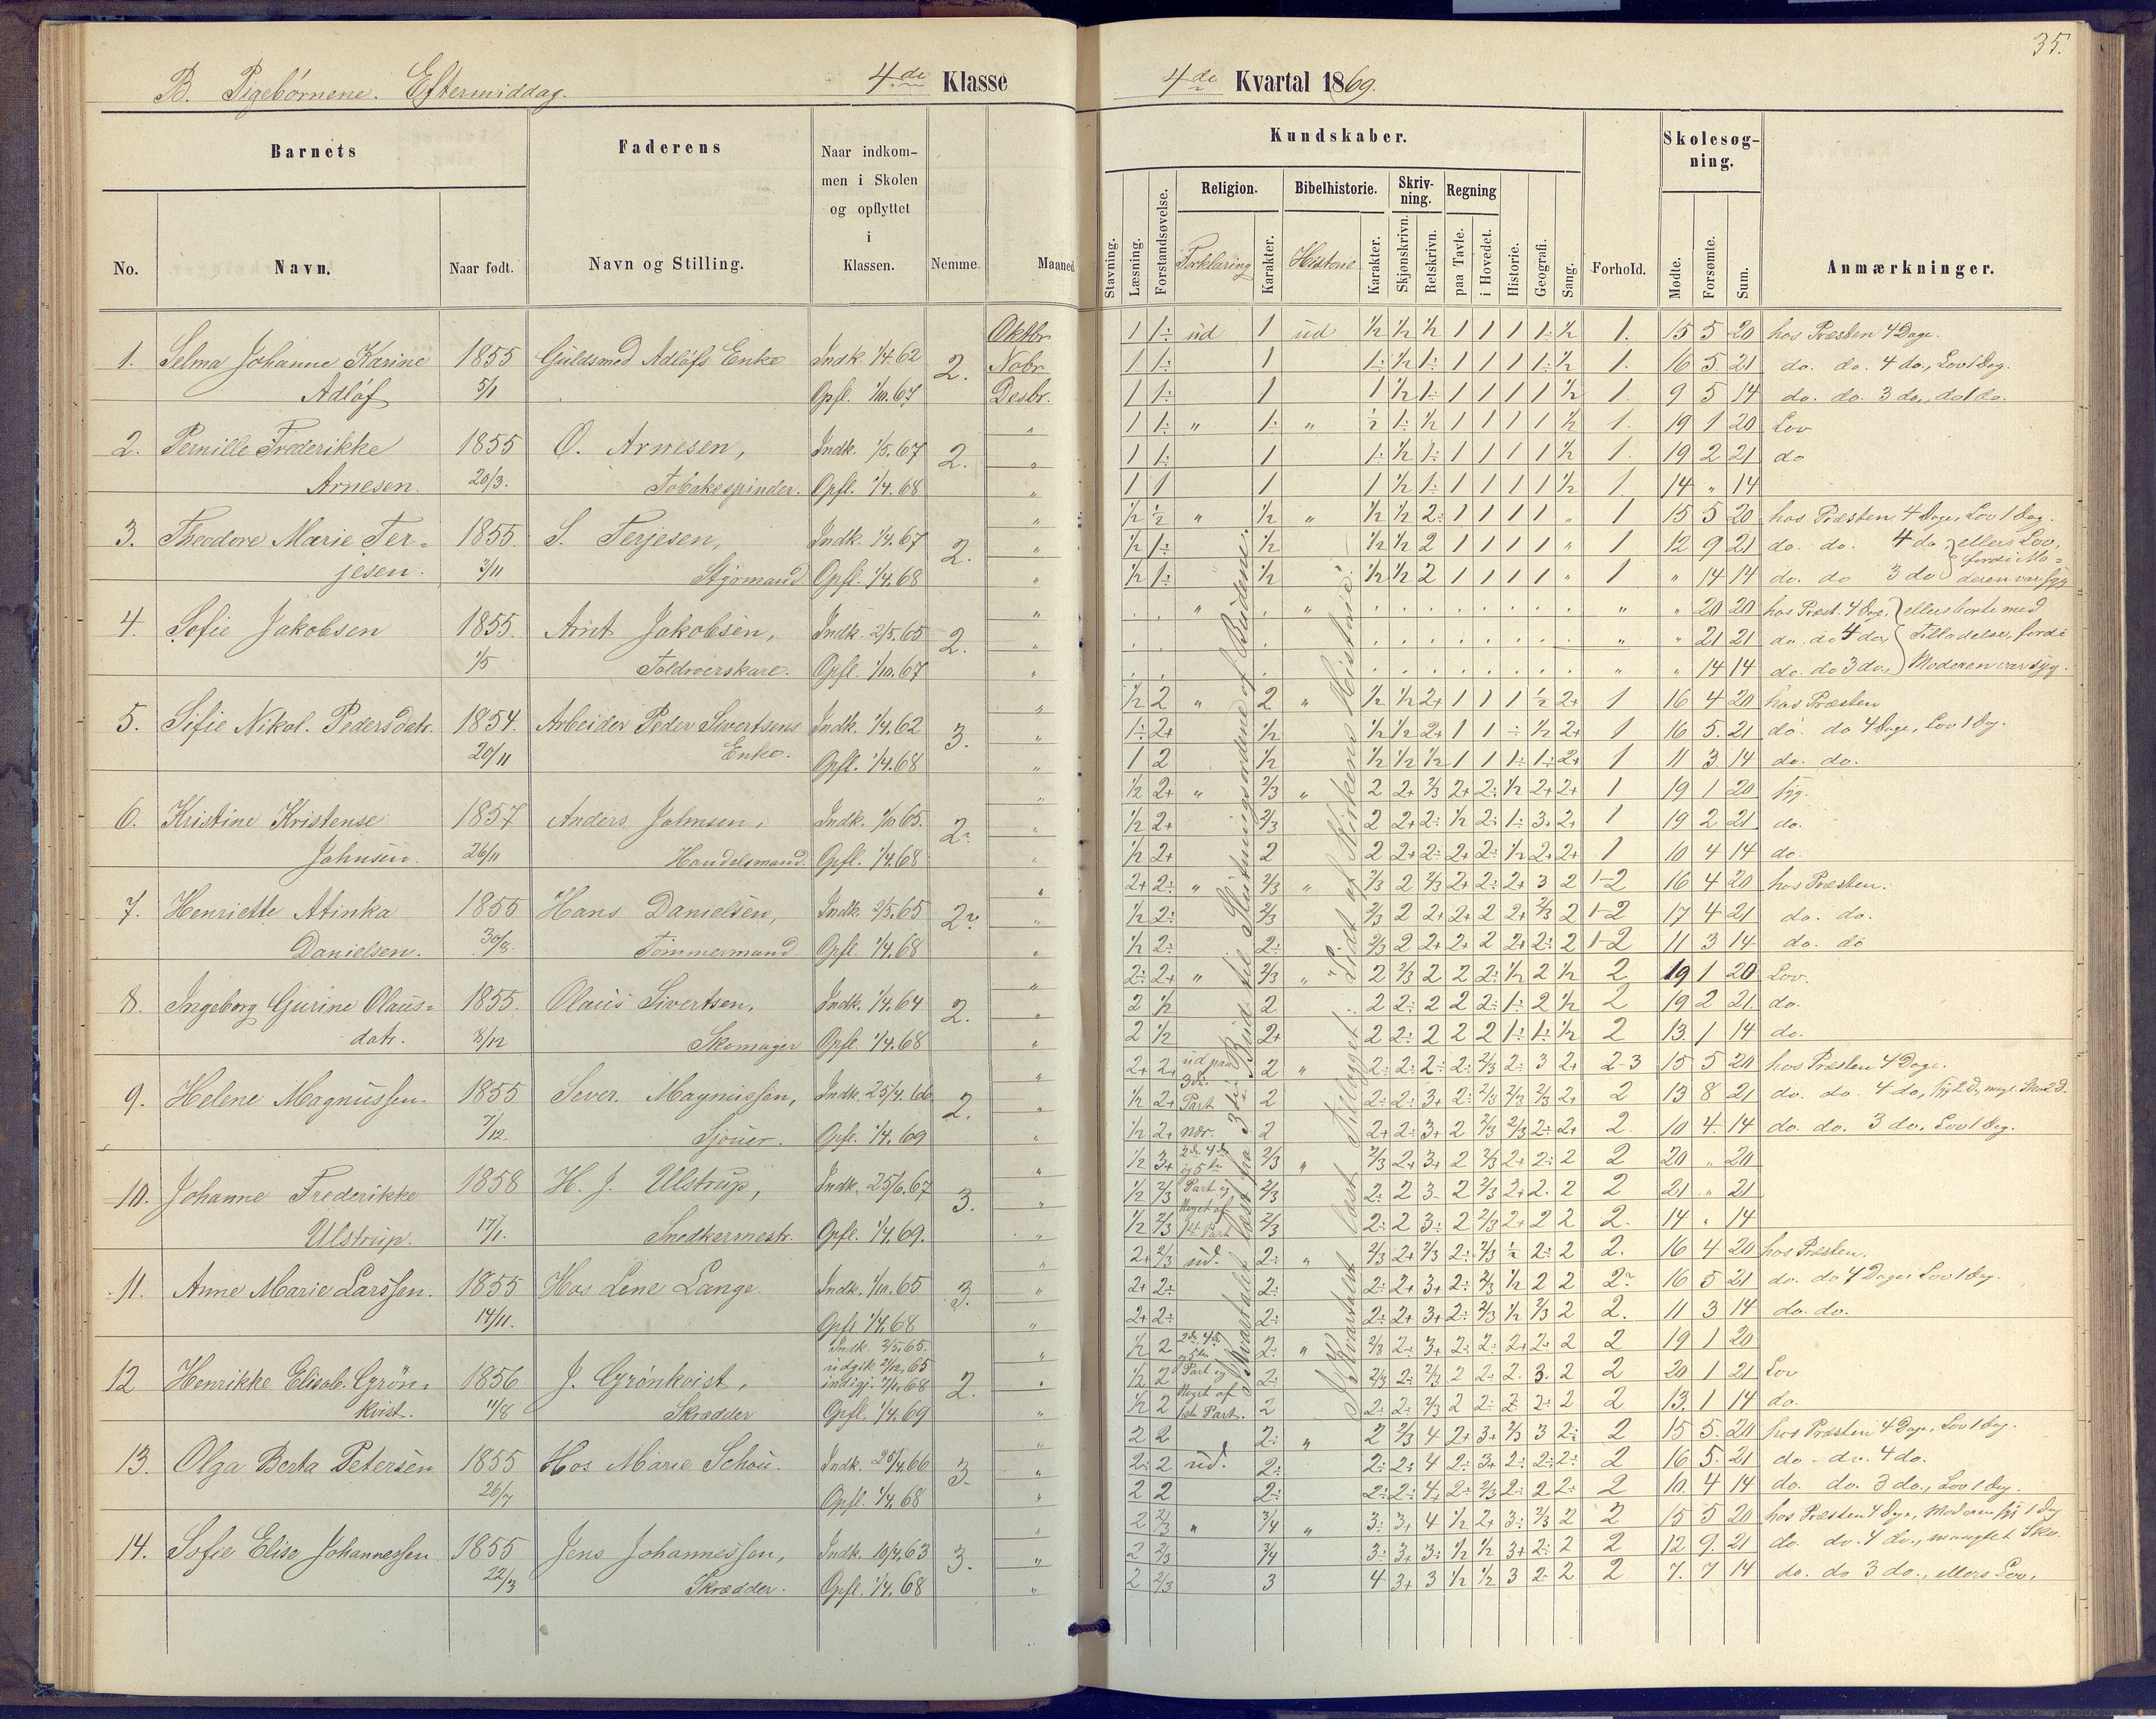 35.
B. Pigebørnene. Eftermiddag. 4de Klasse
4de Kvartal 1869.
Barnets
Faderens
Naar indkom-
men i Skolen
og opflyttet
i
Klassen.
No. Navn. Naar født. Navn og Stilling. Nemme. Maaned
Kundskaber.
Skolesøg-
ning.
Religion. Bibelhistorie. Skriv-
ning. Regning
Stavning. Læsning. Forstandsøvelse. Forklaring Karakter. Historie Karakter. Skjønskrivn. Retskrivn. paa Tavle. i Hovedet. Historie. Geografi. Sang. Forhold. Mødte. Forsømte. Sum. Anmærkninger.
1. Selma Johanne Karine 1855 Guldsmed Adløfs Enke Indk. 1/4.62 2. Oktbr
Adløf 5/1 Opfl. 1/10.67 Nobr
Desbr.
2. Pernille Frederikke 1855 O. Arnesen, Indk. 1/5.67 2.
Arnesen. 20/3. Tobakspinder. Opfl. 1/4.68
3. Theodore Marie Ter= 1855 S. Terjesen, Indk. 1/4.67 2.
jesen. 3/11 Styrmand Opfl. 1/4.68
4. Sofie Jakobsen 1855. Arnt Jakobsen, Indk. 2/5.65 2.
1/5 Toldroerskarl. Opfl. 1/10.67
5. Sifie Nikol. Pedersdatr. 1854. Arbeider Peder Sivertsens Indk. 1/4.62 3.
20/11 Enke. Opfl. 1/4.68
6. Kristine Kristense 1857 Anders Johnsen, Indk. 2/10 65. 2.
Johnsen. 26/11 Handelsmand. Opfl. 1/4.68
7. Henriette Atinka 1855 Hans Danielsen, Indk. 2/5.65 2.
Danielsen. 30/8. Tømmermand Opfl. 1/4.68
8. Ingeborg Gurine Olaus= 1855. Olaus Sivertsen, Indk. 1/4.64 2.
datr. 8/12 Skomager Opfl. 1/4.68
9. Helene Magnussen. 1855 Sever. Magnussen, Indk. 25/4.66 2.
7/12 Sjouer. Opfl. 1/4.69
10. Johanne Frederikke 1858 H. J. Ulstrup, Indk. 25/6.67 3.
Ulstrup. 17/1. Snedkermestr. Opfl. 1/4.69.
11. Anne Marie Larssen. 1855 Hos Lene Lange Indk. 1/10.65 3.
14/11. Opfl 1/4.68
12 Henrikke Elisab. Grön= 1856 J. Grønkvist, Indk. 2/5.65. 2.
udgik 21/12.65
indigj. 7/1.68
kvist. 11/8 Skrædder Opfl. 1/4.69
13. Olga Berta Petersen 1855 Hos Marie Schou. Indk. 25/4.66 3.
26/7 Opfl. 1/4.68
14. Sofie Elise Johannessen 1855 Jens Johannessen, Indk. 10/4.63 3.
22/3 Skrædder. Opfl. 1/4.68
1 1÷ ud 1 ud 1/2 1/2 1/2 1 1 1 1÷ 1/2 1. 15 5 20 hos Præsten 4 Dage.
1 1÷ 1 1÷ 1/2 1÷ 1 1 1 1÷ 1/2 1. 16 5. 21 do. do. 4 do., Lov 1 Dag.
1 1÷ 1 1 1/2 1÷ 1 1 1 1 1/2 1. 9 5 14 do. do. 3 do., do 1 do.
1 1÷ „ 1÷ „ 1/2 1÷ 1/2 1 1 1 1 1/2 1. 19 1 20 Lov
1 1÷ 1 1÷ 1/2 1÷ 1 1 1 1 1/2 1. 19 2 21 do
1 1 1 1 1/2 1÷ 1 1 1 1 1/2 1. 14 „ 14
1/2 1/2 „ 1/2 „ 1/2 1/2 2÷ 1 1 1 1 „ 1 15 5 20 hos Præsten 4 Dage, Lov 1 Dag.
1/2 1÷ 1/2 1/2 1/2 2 1 1 1 1 „ 1 12 9 21 do. do. 4 do } ellers Lov,
fordi Mo=
1/2 1÷ 1/2 1/2 1/2 2 1 1 1 1 „ 1 „ 14 14 do. do 3 do } deren var syg
„ 20 20 hos Præst. 4 Dage, } ellers borte med
„ 21 21 do. do 4 do, } Tilladelse, fordi
„ 14 14 do. do 3 do., } Moderen var syg.
1/2 2 „ 2 „ 1/2 1/2 2+ 1 1 1 1/2 2+ 1 16 4 20 hos Præsten
1÷ 2+ 1/2 1/2 1/2 2+ 1 1 ÷ 1/2 2+ 1 16 5. 21 do. do 4 Dage, Lov 1 Dag.
1 2 1/2 1/2 1/2 1/2 1 1 1÷ 1÷ 2+ 1 11 3 14 do. do.
1/2 2+ „ 2/3 „ 2 2+ 2/3 2+ 2÷ 1/2 2+ 2+ 1 19 1 20 syg.
1/2 2+ 2/3 2 2+ 2÷ 1/2 2÷ 1÷ 3+ 2+ 1 19 2 21 do.
1/2 2+ 2 2 2+ 2÷ 2+ 2÷ 1/2 2+ 2+ 1 10 4 14 do.
2+ 2÷ „ 2/3 „ 2/3 2 2/3 2+ 2÷ 2+ 3 2 1-2 16 4 20 hos Præsten.
1/2 2÷ 2/3 2/3 2 2+ 2+ 2 2+ 2/3 2 1-2 17 4 21 do. do.
1/2 2÷ 2÷ 2/3 2 2+ 2+ 2 2+ 2÷ 2 1-2 11 3 14 do. do
2÷ 2+ „ 2/3 „ 2 2/3 2 2 2÷ 1/2 2 1/2 2 19 1 20 Lov.
2 1/2 2 2 2÷ 2 2 2÷ 1÷ 2 1/2 2 19 2 21. do.
2 1/2 2+ 2 2÷ 2 2 2 1÷ 1÷ 1/2 2 13. 1 14 do.
2+ 2+ ud paa 2 „ 2÷ 2÷ 2÷ 2÷ 2/3 2÷ 3 2+ 2-3 15 5 20 hos Præsten 4 Dage.
3die
1/2 2+ Part 2 2÷ 2÷ 3+ 2÷ 2/3 2/3 2/3 2+ 2 13 8 21 do. do. 4 do,
1/2 2+ nær. 2 2+ 2÷ 3+ 2 2/3 2/3 2÷ 2+ 2. 10 4. 14 do. do. 3 do. Lov 1 Dag.
1/2 3+ 2de 4de 2/3 „ 2/3 2+ 3+ 2 2/3 2+ 2÷ 2 2 20 „ 20
og 5te
1/2 2/3 Part og 2/3 2÷ 2 3- 2 2/3 2+ 2. 2 2 21 „ 21
Noget af
1/2 2/3 1st. Part 2/3 2÷ 2 3÷ 2 2/3 2+ 2 2 2. 14 „ 14
2+ 2/3 ud. 2÷ „ 2/3 2+ 2/3 2÷ 2/3 1/2 2÷ 2 2. 16 4 20 hos Præsten.
2+ 2÷ 2÷ 2÷ 2+ 3+ 2÷ 2/3 1/2 2 2 2 16 5 21 do. do 4 Dage Lov 1 Dag.
2+ 2÷ 2÷ 2÷ 2+ 3+ 2÷ 2/3 1/2 2/3 2 2. 11 3 14 do. do.
1/2 2 2de 4de 2÷ „ 2/3 2÷ 3+ 2÷ 2÷ 2+ 2÷ 2 2 19 1 20
og 5te
1/2 2 Part og 2÷ 2/3 2÷ 2/3 2 2÷ 2. 3. 2 2 20 1 21 Lov
Noget af
1/2 2 1ste Part. 2 2÷ 2÷ 2/3 2 2÷ 2 2÷ 2 2 13. 1 14 do.
2 2 2÷ „ 2 2/3 4 2+ 3+ 2/3 3 2÷ 2 15 5. 20 hos Præsten 4 Dage, Lov 1 Dag.
2÷ 2 ud. 2÷ 2÷ 2÷ 4 2÷ 3+ 2÷ 2÷ 2÷ 2 16 5. 21 do - do. 4 do.
2 2 2÷ 2÷ 2÷ 4+ 2÷ 2/3 2÷ 2 2÷ 2 10. 4 14 do. do. 3 do., Lov 1 Dag.
2 2/3 „ 3/4 „ 3÷ 3+ 4 1/2 2+ 3÷ 2/3 2 2 15 5 20 hos Præsten 4 Dage, Moderen syg 1 Dag
2 2/3 3/4 3÷ 3+ 3÷ 1/2 1/2 3+ 2÷ 2 2 12 9. 21 do. do. 4 do., manglet Sko.
2 2/3 3 4 3+ 3 1/2 1/2 3 2÷ 2 2 7. 7 14 do. do 3 do., ellers Lov.
I Kvartalet læst fra 3die Bud til Slutningsordene af Budene.
I Kvartalet læst Tillæget Lidt af Kirkens Historie.